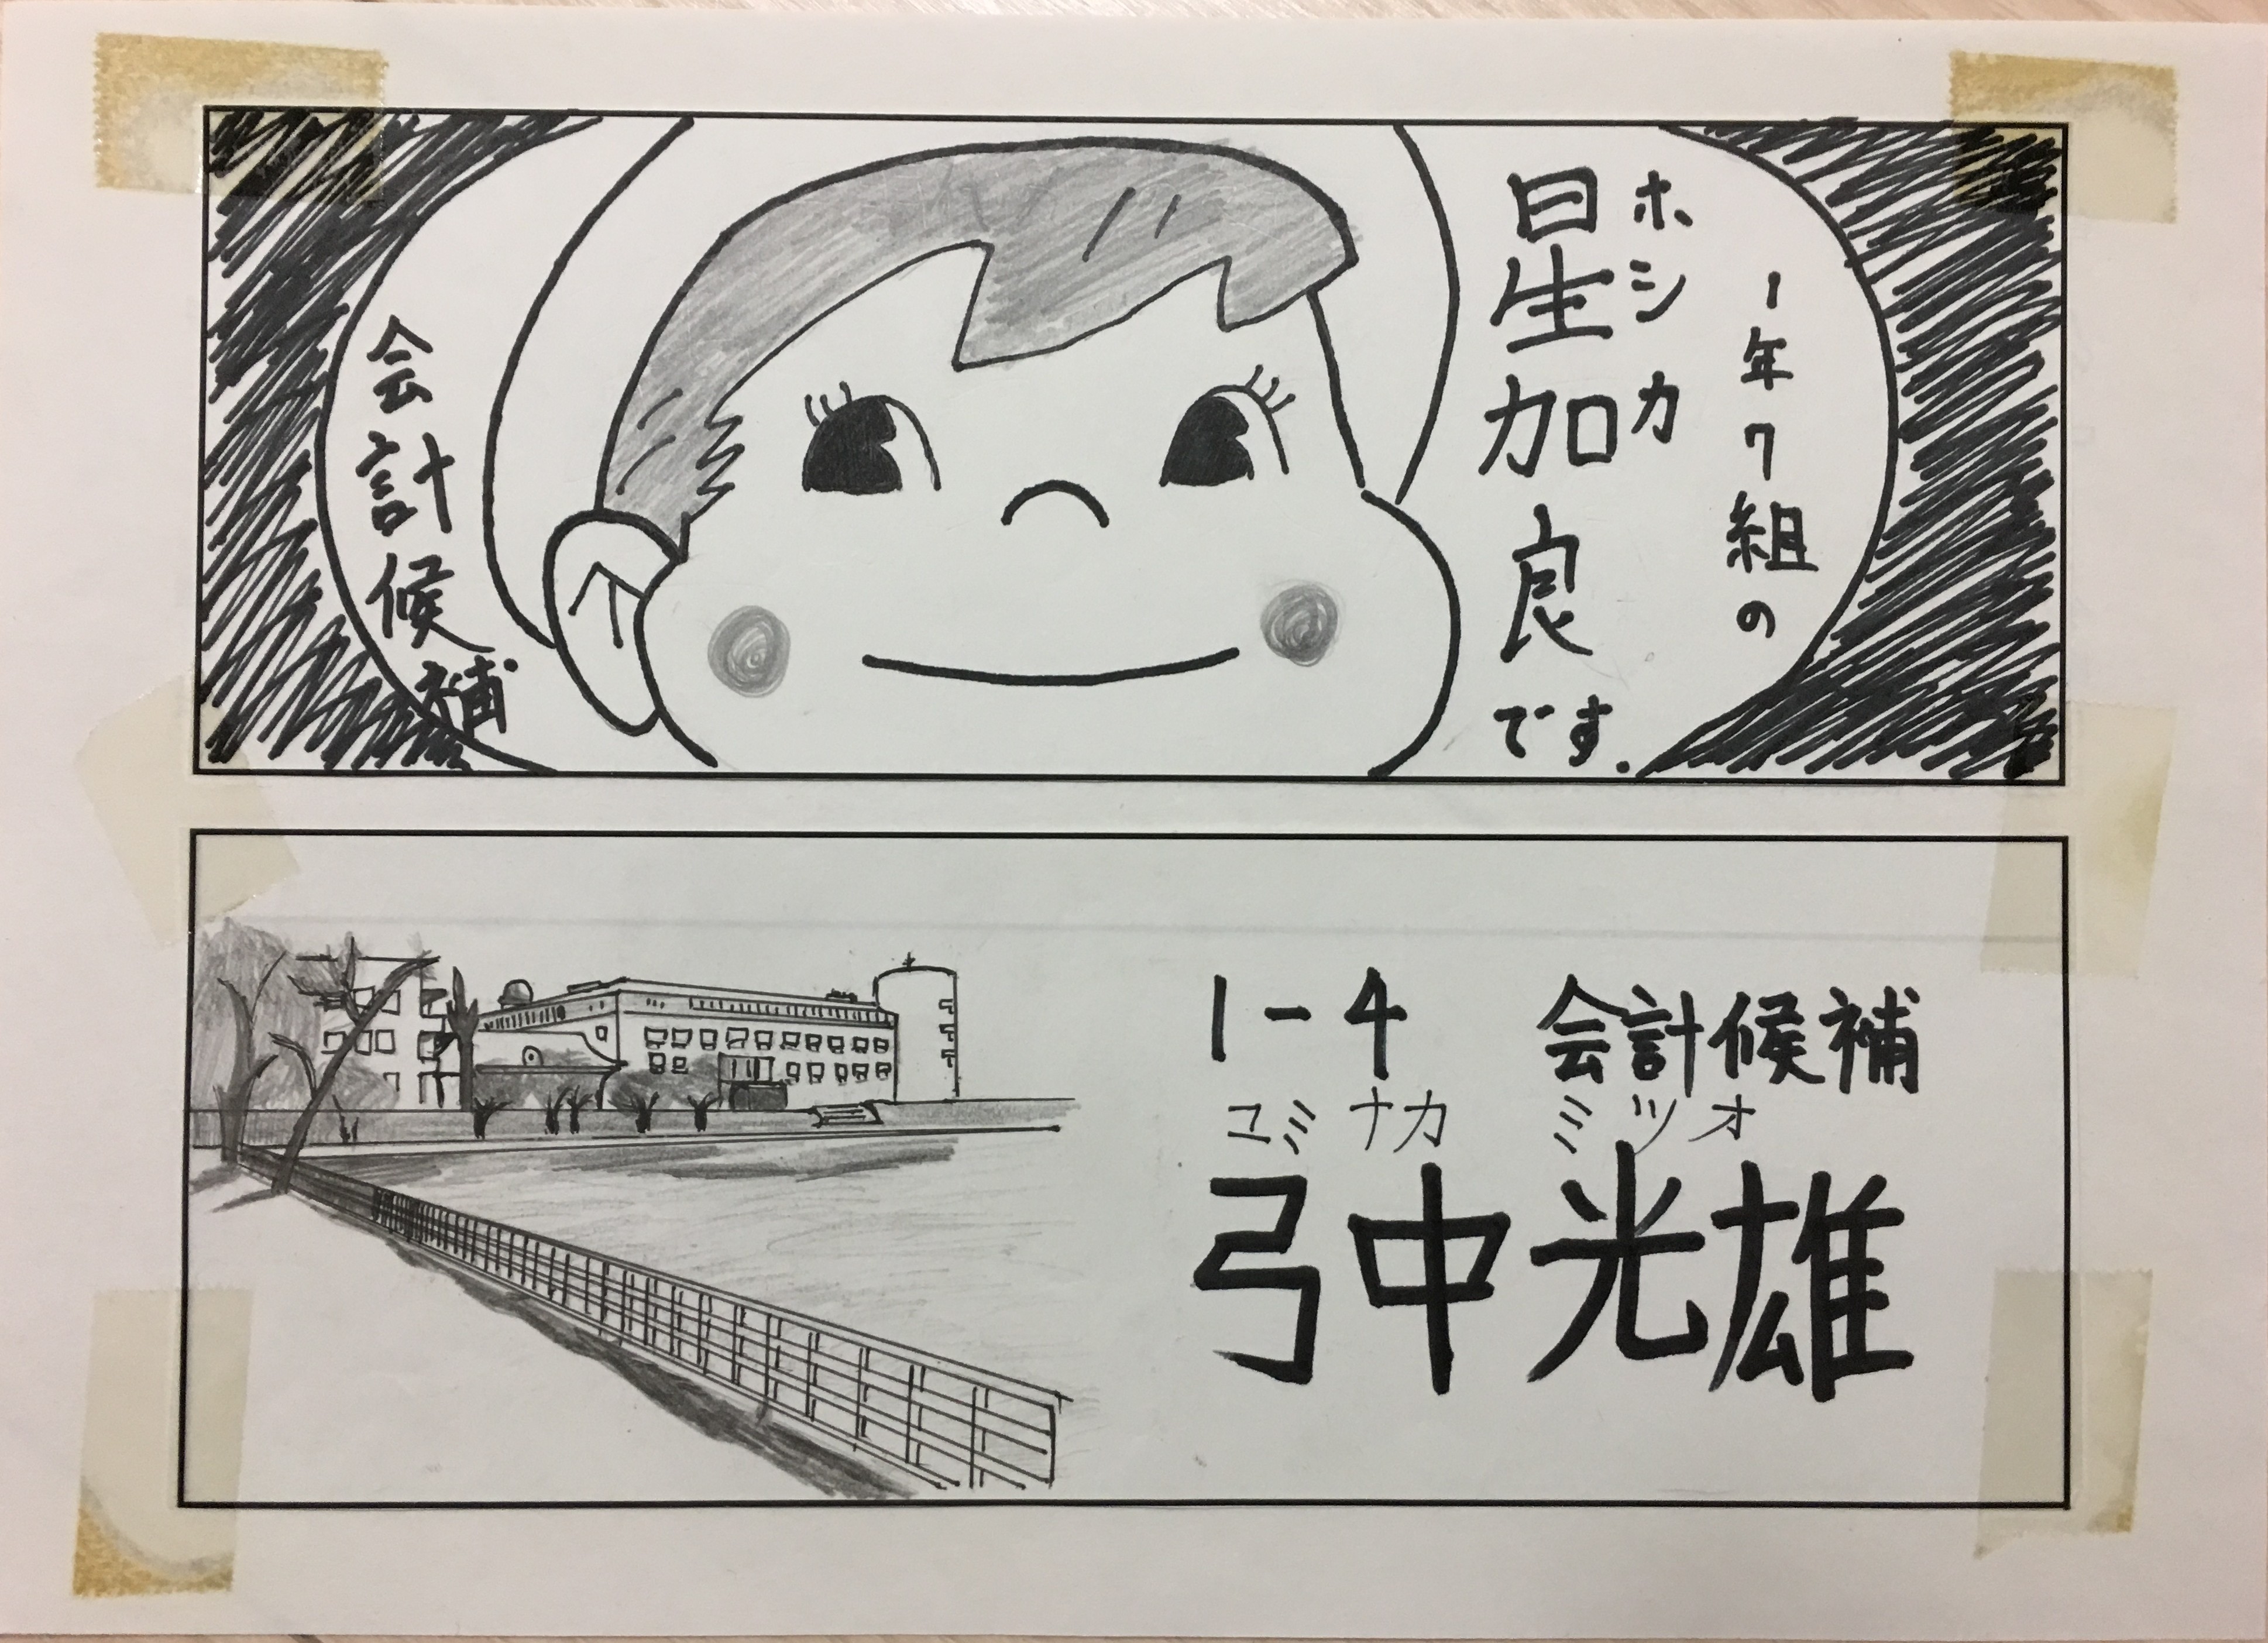 1年7組の
ホシ カ
星加良
です.
会計候補
1-4 会計候補
ユミ ナカ ミツ オ
弓中光雄